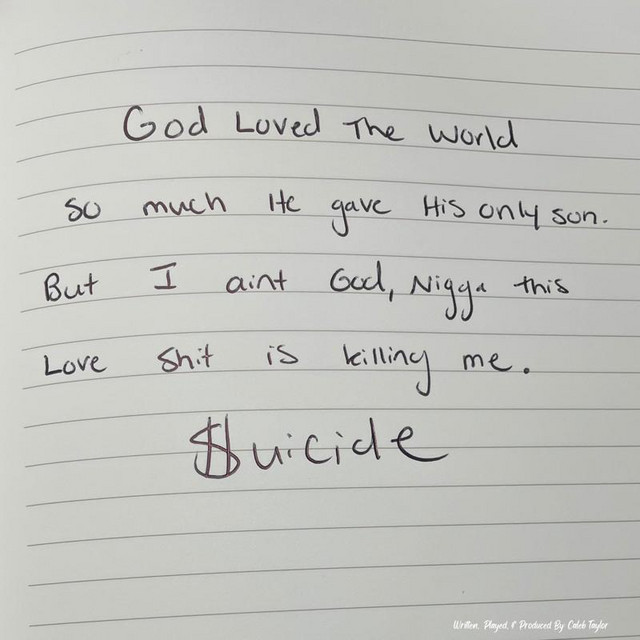 God Loved The World
so much He gave His only son.
But I aint God, Nigga this
Love shit is killing me.
$uicide
Written, Played, & Produced By Caleb Taylor